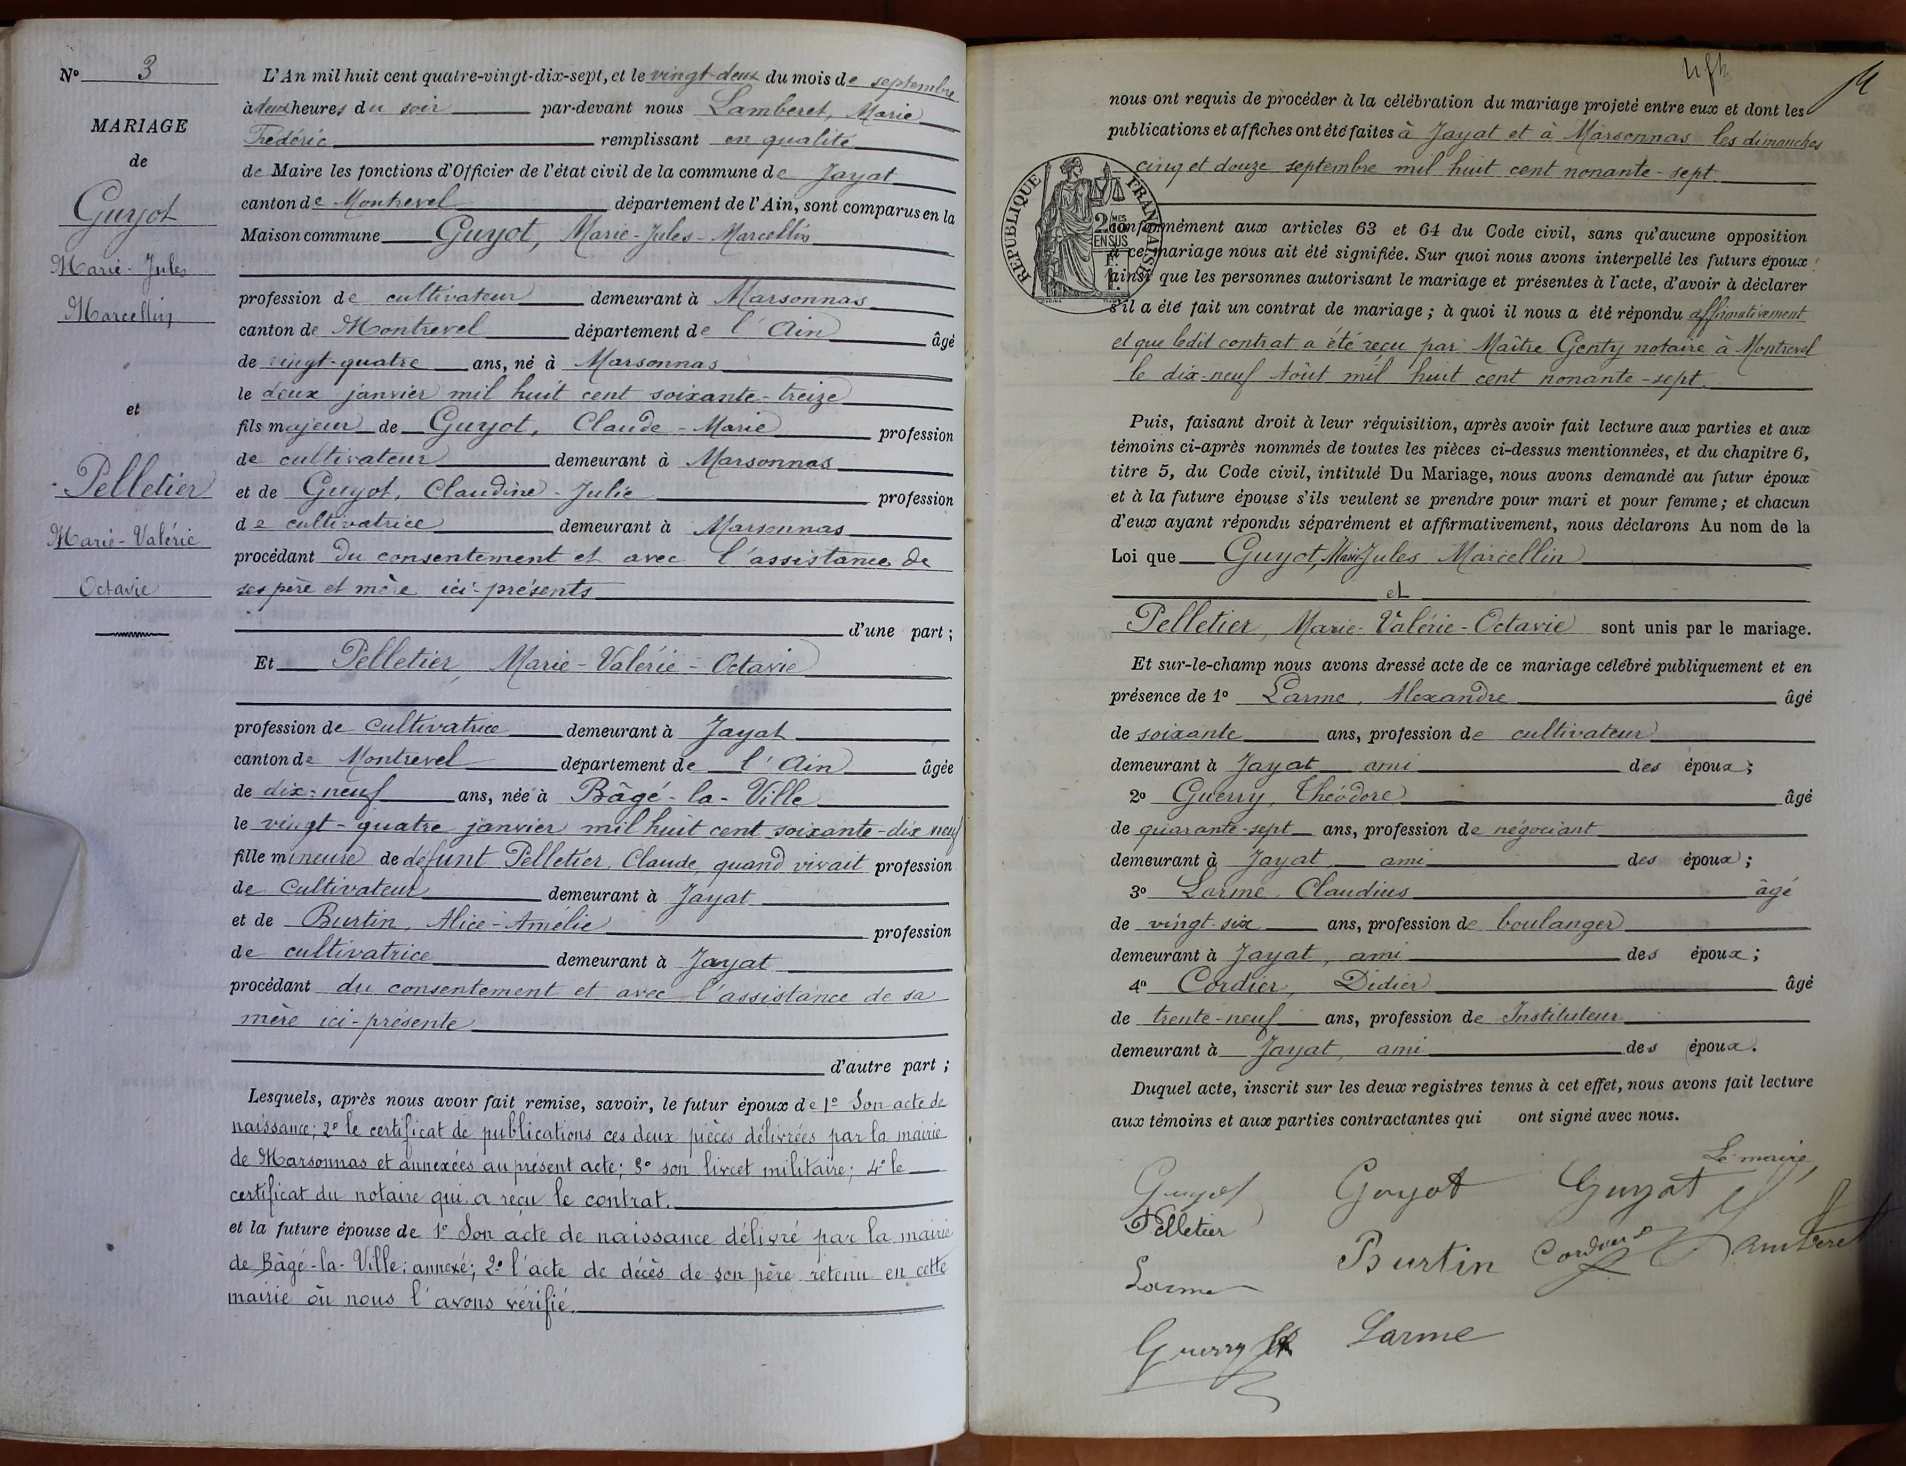 N° 3
MARIAGE
de
Guyot
Marie-Jules
Marcellin
et
Pelletier
Marie-Valérie
Octavie
L'An mil huit cent quatre-vingt-dix-sept, et le vingt-deux du mois de septembre
à deux heures du soir par-devant nous Lamberet, Marie
Frédéric remplissant en qualité
de Maire les fonctions d'Officier de l'état civil de la commune de Jayat
canton de Montrevel département de l'Ain, sont comparus en la
Maison commune Guyot, Marie-Jules-Marcellin
profession de cultivateur demeurant à Marsonnas
canton de Montrevel département de l'Ain âgé
de vingt-quatre ans, né à Marsonnas
le deux janvier mil huit cent soixante-treize
fils majeur de Guyot, Claude-Marie profession
de cultivateur demeurant à Marsonnas
et de Guyot, Claudine-Julie profession
de cultivatrice demeurant à Marsonnas
procédant du consentement et avec l'assistance de
ses père et mère ici-présents
d'une part ;
Et Pelletier, Marie-Valérie-Octavie
profession de cultivatrice demeurant à Jayat
canton de Montrevel département de l'Ain âgée
de dix-neuf ans, née à Bâgé-la-Ville
le vingt-quatre janvier mil huit cent soixante-dix neuf
fille mineure de défunt Pelletier, Claude, quand vivait profession
de cultivateur demeurant à Jayat
et de Burtin, Alice-Amélie profession
de cultivatrice demeurant à Jayat
procédant du consentement et avec l'assistance de sa
mère ici-présente
d'autre part ;
Lesquels, après nous avoir fait remise, savoir, le futur époux de 1° Son acte de
naissance; 2° le certificat de publications ces deux pièces délivrées par la mairie
de Marsonnas et annexées au présent acte; 3° son livret militaire; 4° le
certificat du notaire qui a reçu le contrat.
et la future épouse de 1° Son acte de naissance délivré par la mairie
de Bâgé-la-Ville; annexé; 2° l'acte de décès de son père retenu en cette
mairie où nous l'avons vérifié.
nous ont requis de procéder à la célébration du mariage projeté entre eux et dont les
publications et affiches ont été faites à Jayat et à Marsonnas les dimanches
cinq et douze septembre mil huit cent nonante-sept.
RÉPUBLIQUE FRANÇAISE
2 MES
EN SUS
conformément aux articles 63 et 64 du Code civil, sans qu'aucune opposition
à ce mariage nous ait été signifiée. Sur quoi nous avons interpellé les futurs époux
ainsi que les personnes autorisant le mariage et présentes à l'acte, d'avoir à déclarer
s'il a été fait un contrat de mariage ; à quoi il nous a été répondu affirmativement
et que ledit contrat a été reçu par Maître Genty notaire à Montrevel
le dix-neuf Août mil huit cent nonante-sept.
Puis, faisant droit à leur réquisition, après avoir fait lecture aux parties et aux
témoins ci-après nommés de toutes les pièces ci-dessus mentionnées, et du chapitre 6,
titre 5, du Code civil, intitulé Du Mariage, nous avons demandé au futur époux
et à la future épouse s'ils veulent se prendre pour mari et pour femme ; et chacun
d'eux ayant répondu séparément et affirmativement, nous déclarons Au nom de la
Loi que Guyot, Marie-Jules Marcellin
et
Pelletier, Marie-Valérie-Octavie sont unis par le mariage.
Et sur-le-champ nous avons dressé acte de ce mariage célébré publiquement et en
présence de 1° Larme, Alexandre âgé
de soixante ans, profession de cultivateur
demeurant à Jayat ami des époux ;
2° Guerry, Théodore âgé
de quarante-sept ans, profession de négociant
demeurant à Jayat, ami des époux ;
3° Larme, Claudius âgé
de vingt-six ans, profession de boulanger
demeurant à Jayat, ami des époux ;
4° Cordier, Didier âgé
de trente-neuf ans, profession de Instituteur
demeurant à Jayat, ami des époux.
Duquel acte, inscrit sur les deux registres tenus à cet effet, nous avons fait lecture
aux témoins et aux parties contractantes qui ont signé avec nous.
Le maire,
Guyot Guyot Guyot
Pelletier Burtin Cordier Lamberet
Larme
Guerry Larme